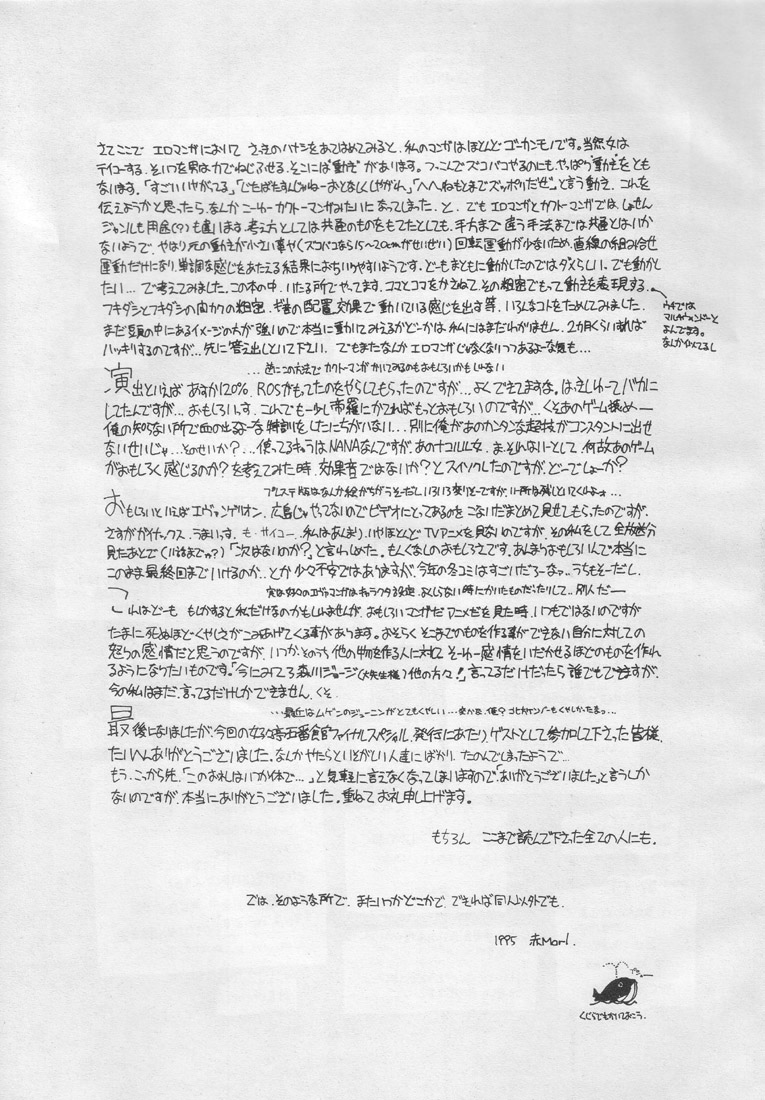 さてここで エロマンガにおいて さっきのハナシをあてはめてみると、私のマンガはほとんどゴーカンモノです。当然女は
テイコーする。そいつを男は力でねじふせる。そこには"動き"があります。つっこんでズコバコやるのにも、やっぱり"動き"をとも
ないます。「すごいいやがってる」「じたばたすんじゃねーおとなしくしやがれ」「へへねもとまでズッポリだぜ」と言う動き、これを
伝えようかと思ったら、なんか こーゆー カクトーマンガみたいになってしまった、と。でもエロマンガとカクトーマンガでは、しょせん
ジャンルも用途(?)も違います。考え方としては共通のものをもてたとしても、手方まで違う手法までは共通とはいか
ないようで、やはり死の動きが小さい事や(ズコバコなら15〜20cmがせいぜい)回転運動が少ないため、直線の組み合せ
運動だけになり、単調な感じをあたえる結果におちいりやすいようです。どーもまともに動かしたのではダメらしい。でも動かし
たい…で考えてみました。この本の中、いたる所でやってます。コマとコマをかさねて、その粗密でもって動きを表現する。
フキダシとフキダシの向カクの粗密、ギ音の配置、効果で動いている感じを出す等、いろんなコトをためしてみました。
まだ頭の中にあるイメージの方が強いので本当に動いてみえるかどーかは私にはまだわかりません。2カ月くらいすれば
ハッキリするのですが…先に答え出しといて下さい。でもまたなんかエロマンガじゃなくなりつつあるよーな気も…
ウチでは
マルチウィンドーと
よんでます。
なんかにてるし
…逆にこの方法でカクトーマンガかいてみるのもおもしろいかもしんない
演出といえばあすか120%。ROSがもってたのをやらしてもらったのですが…よくできてますなぁ。はっきしゆーてバカに
してたんですが…おもしろいっす。これでもー少し帝羅にかてればもっとおもしろいのですが…くそぉあのゲーム極め―
俺の知らない所で血の出るよーな特訓をしたにちがいない…別に俺があのカンタンな超技がコンスタントに出せ
ないせいじゃ…そのせいか?…使ってるキャラはNANAなんですが、あの十コルル女。ま、それはいーとして、何故あのゲーム
がおもしろく感じるのか?を考えてみた時、効果音ではないか?とスイソクしたのですが、どーでしょーか?
プレステ版はなんか絵がちがうそーだしいろいろ変りそーですが、いー所は残しといてくれよォ…
おもしろいといえばエヴァンゲリオン。広島じゃやってないのでビデオにとってあるのをこないだまとめて見せてもらったのですが、
さすがガイナックス、うまいっす。も・サイコー。私はあんまり、いやほとんどTVアニメを見ないのですが、その私をして全放送分
見たあとで(八話までかァ?)「次はないのか?」と言わしめた。もんくなしのおもしろさです。あんまりおもしろいんで本当に
このまま最終回までいけるのか…とか少々不安ではありますが、今年の冬コミはすごいだろーなァ…うちもそーだし。
これはどーも もしかすると私だけなのかもしれませんが、おもしろいマンガだアニメだを見た時、いつもではないのですが
たまに死ぬほどくやしさがこみあげてくる事があります。おそらくそこまでのものを作る事ができない自分に対しての
怒りの感情だと思うのですが、いつか、そのうち他の物を作る人に対してそーゆー感情をいだかせるほどのものを作れ
るようになりたいものです。「今にみてろ森川ジョージ(大先生様)他の方々!」言ってるだけだったら誰でもできますが、
今の私はまだ、言ってるだけしかできません。くそぉ
…最近はムゲンのジューニングがとてもくやしい…
最後になりましたが、今回の女郎亭五番館ファイナルスペシャル、発行にあたり、ゲストとして参加して下さった皆様、
たいへんありがとうございました。なんかやたらといそがしい人達にばかり、たのんでしまったようで…
もう、ここから先、「このお礼はいつか体で…」と気軽に言えなくなってしまいますので「ありがとうございました」と言うしか
ないのですが、本当にありがとうございました。重ねてお礼申し上げます。
もちろん ここまで読んで下さった全ての人にも。
では、そのような所で、またいつかどこかで、できれば同人以外でも。
1995 赤Mori.
くじらでもかいておこう。